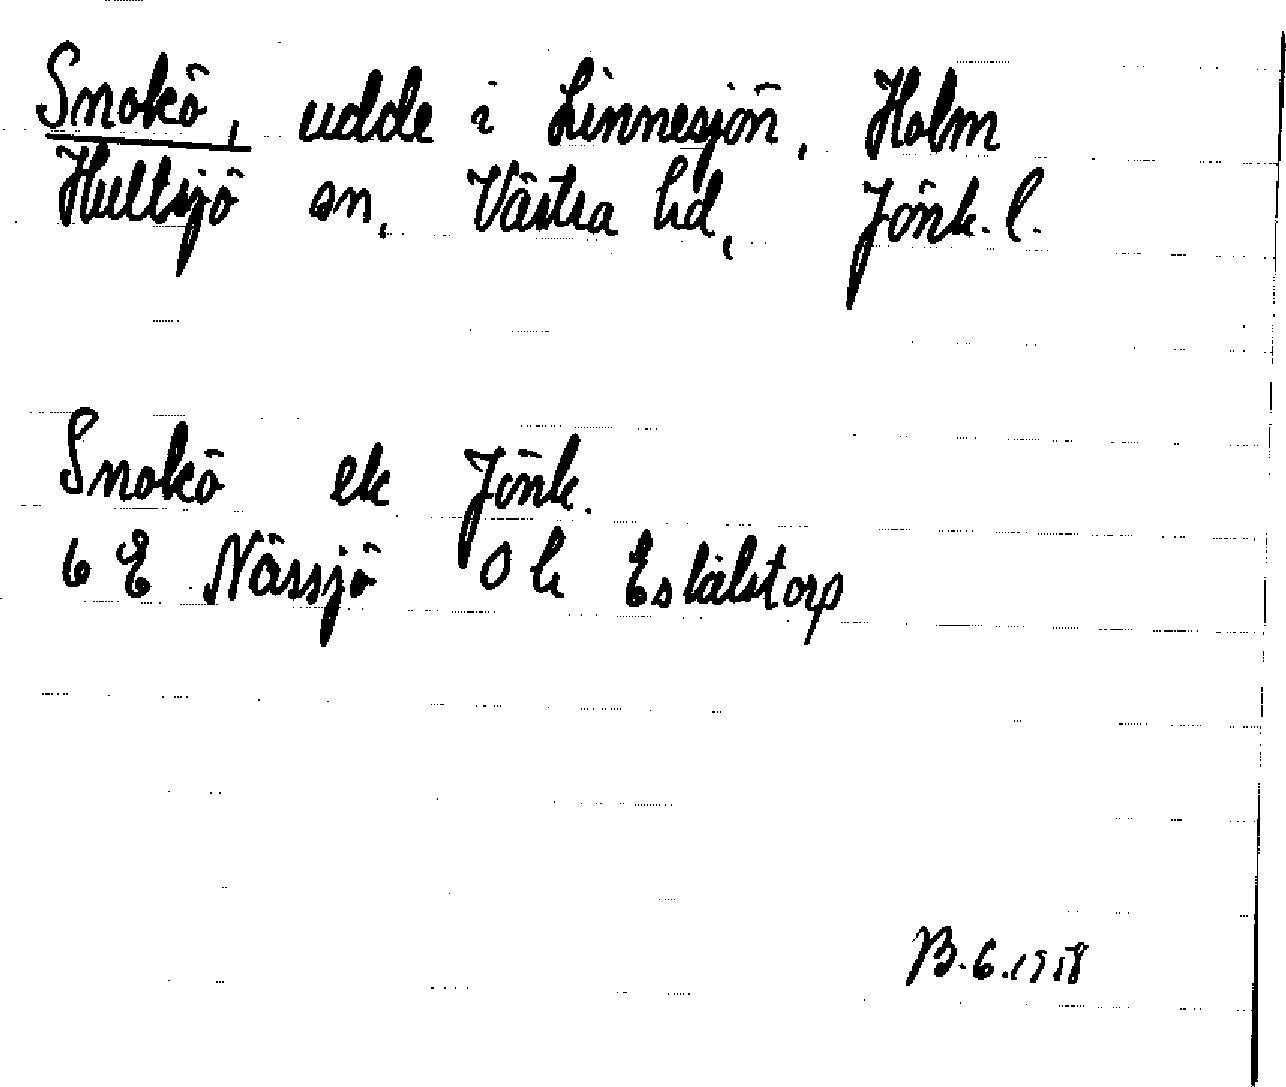 Snokö, udde i Linnesjön, Holm
Hultsjö sn, Västra hd, Jönk. l.
Snokö ek Jönk.
6 E Nässjö 0 h Eskilstorp
B.G. 1958